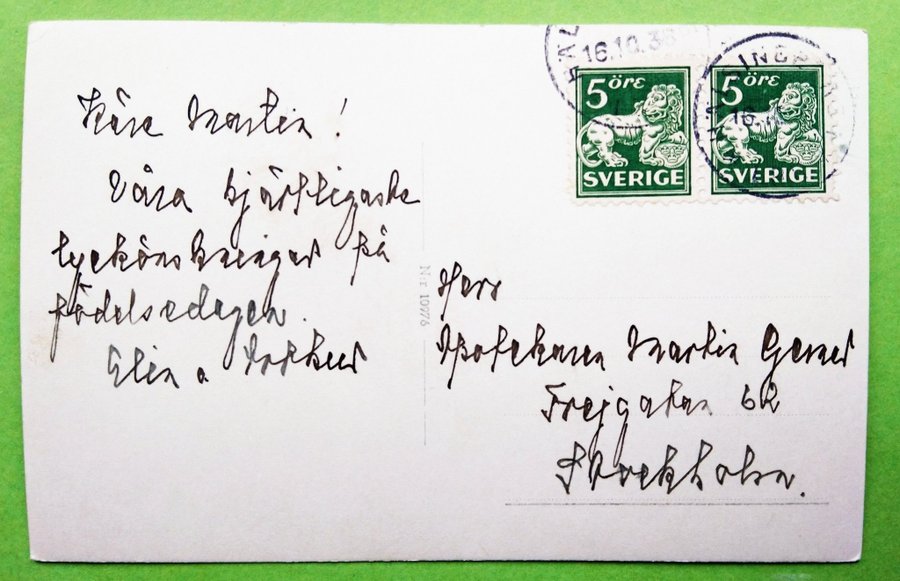 Käre Martin!
Våra hjärtligaste
lyckönskningar på
födelsedagen.
Elin o
Nr 10976
16.10.36
5 öre
SVERIGE
5 öre
SVERIGE
16
Herr
Apotekaren Martin
Frejgatan 62
Stockholm.